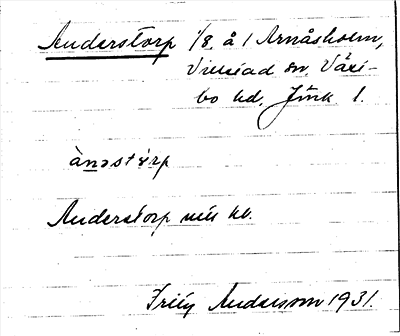 Anderstorp 1/8 å 1 Arnåsholm,
Villstad sn. Västbo hd. Jönk l.
ànəstórp
Anderstorp
Andersson 1931.